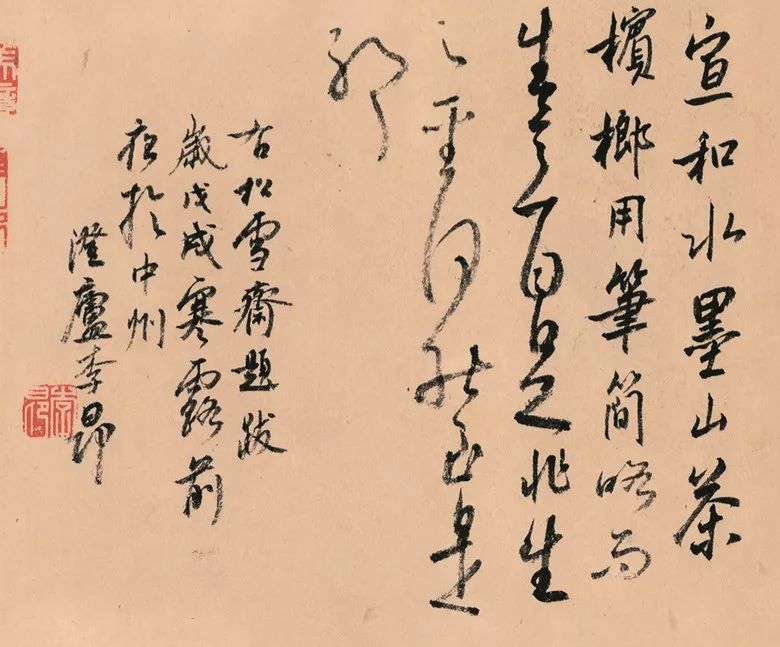 宣和水墨山茶
檳榔用筆簡略而
生意足非生
之聖何能至是
耶
右松雪齋題跋
歲戊戌寒露前
於中州
廬李昂